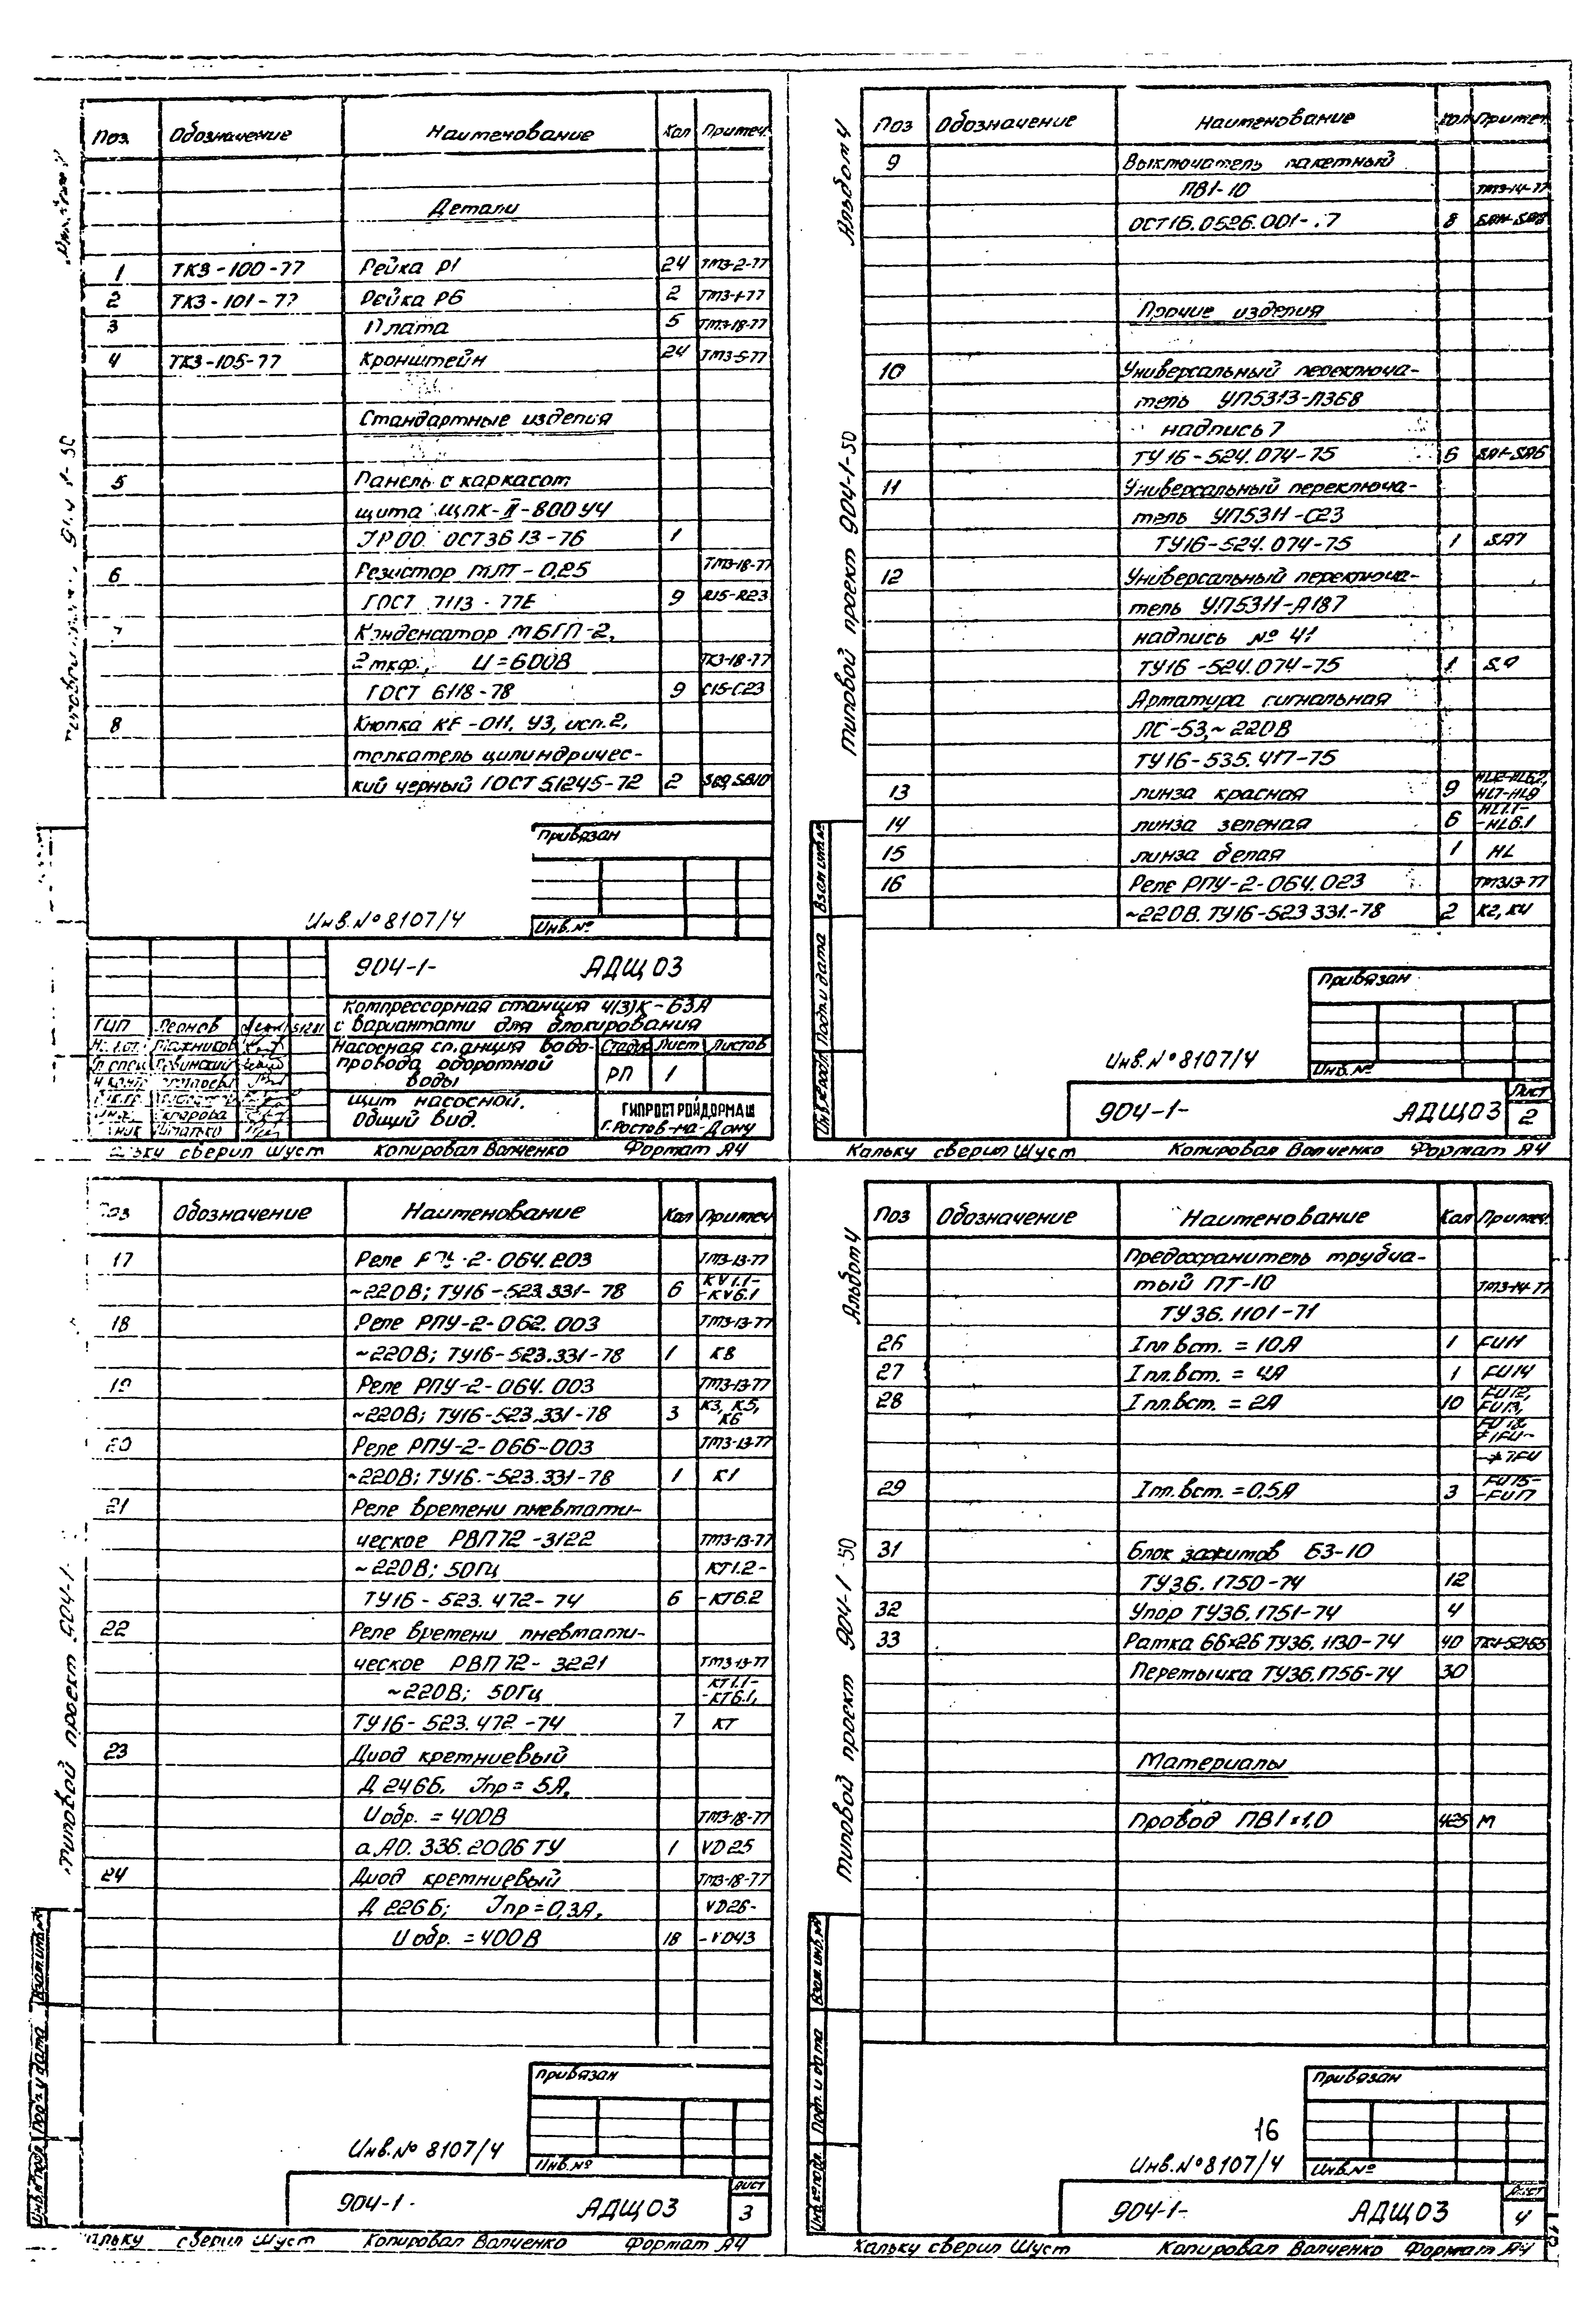 Поз. Обозначение Наименование Кол Примеч.
Детали
1 ТКЗ-100-77 Рейка Р1 24 ТМЗ-2-77
2 ТКЗ-101-77 Рейка Р6 2 ТМЗ-1-77
3 Плата 5 ТМЗ-18-77
4 ТКЗ-105-77 Кронштейн 24 ТМЗ-5-77
Стандартные изделия
5 Панель с каркасом
щита ЩПК-II-800 У4
IP00 ОСТ36 13-76 1
6 Резистор МЛТ-0,25 ТМЗ-18-77
ГОСТ 7113-77Е 9 R15-R23
7 Конденсатор МБГП-2,
2мкф., U=600В ТКЗ-18-77
ГОСТ 6118-78 9 C15-C23
8 Кнопка КЕ-011, У3, исп.2,
толкатель цилиндричес-
кий черный ГОСТ 51245-72 2 SB9, SB10
Привязан
Инв.№ 8107/4
Инв.№
904-1- АДЩ 03
Компрессорная станция 4(3)К-63А
ГИП Леонов с вариантами для блокирования
Насосная станция водо-
провода оборотной
воды
Стадия Лист Листов
РП 1
Щит насосной.
Общий вид.
ГИПРОСТРОЙДОРМАШ
г. Ростов-на-Дону
Кальку сверил Шуст Копировал Волченко Формат А4
Альбом 4
Типовой проект 904-1-50
Поз Обозначение Наименование Кол Примеч.
9 Выключатель пакетный
ПВ1-10 ТМЗ-14-77
ОСТ16.0526.001- 7 8
Прочие изделия
10 Универсальный переключа-
тель УП5313-Л368
надпись 7
ТУ 16-524.074-75 6 SA1-SA6
11 Универсальный переключа-
тель УП5311-С23
ТУ16-524.074-75 1 SA7
12 Универсальный переключа-
тель УП5311-А187
надпись № 41
ТУ16-524.074-75 1
Арматура сигнальная
ЛС-53,~220В
ТУ16-535.417-75
13 линза красная 9 HL1.2-HL6.2, HL7-HL9
14 линза зеленая 6 HL1.1- -HL6.1
15 линза белая 1 HL
16 Реле РПУ-2-064.023 ТМЗ13-77
~220В. ТУ16-523 331.-78 2 К2, К4
Взам инв.№
Подп и дата
Инв.№ подл.
Привязан
Инв.№ 8107/4
Инв.№
904-1- АДЩ03
Лист
2
Кальку сверил Шуст Копировал Волченко Формат А4
Поз Обозначение Наименование Кол Примеч
17 Реле РПУ-2-064.203 ТМЗ-13-77
~220В; ТУ16-523.331-78 6 KV1.1- -KV6.1
18 Реле РПУ-2-062.003 ТМЗ-13-77
~220В; ТУ16-523.331-78 1 К8
19 Реле РПУ-2-064.003 ТМЗ-13-77
~220В; ТУ16-523.331-78 3 К3, К5, К6
20 Реле РПУ-2-066-003 ТМЗ-13-77
~220В; ТУ16.-523.331-78 1 К1
21 Реле времени пневмати-
ческое РВП72-3122 ТМЗ-13-77
~220В; 50Гц КТ1.2-
ТУ16-523.472-74 6 -КТ6.2
22 Реле времени пневмати-
ческое РВП72-3221 ТМЗ-13-77
~220В; 50Гц КТ1.1- -КТ6.1,
ТУ16-523.472-74 7 КТ
23 Диод кремниевый
Д 246Б. Iпр=5А,
Uобр.=400В ТМЗ-18-77
аА0.336.2006 ТУ 1 VD25
24 Диод кремниевый ТМЗ-18-77
Д 226Б; Iпр=0,3А, VD26-
Uобр.=400В 18 -VD43
типовой проект 904-1-
Взам.инв.№
Подп. и дата
Инв.№ подл.
Привязан
Инв.№ 8107/4
Инв.№
904-1- АДЩ 03
Лист
3
Кальку сверил Шуст Копировал Волченко Формат А4
Альбом 4
типовой проект 904-1 50
Поз Обозначение Наименование Кол Примеч.
Предохранитель трубча-
тый ПТ-10 ТМЗ-14-77
ТУ36.1101-71
26 Iпл.вст.=10А 1 FU11
27 Iпл.вст.=4А 1 FU14
28 Iпл.вст.=2А 10 FU12, FU13,
FU18,
÷7FU
29 Iпл.вст.=0.5А 3 FU15- -FU17
31 Блок зажимов БЗ-10
ТУ36.1750-74 12
32 Упор ТУ36.1751-74 4
33 Рамка 66×26 ТУ36.1130-74 40
Перемычка ТУ36.1756-74 30
Материалы
Провод ПВ1×1,0 425 м
Взам. инв.№
Подп. и дата
Инв.№ подл.
Привязан
16
Инв.№8107/4
Инв.№
904-1- АДЩ03
Лист
4
Кальку сверил Шуст Копировал Волченко Формат А4